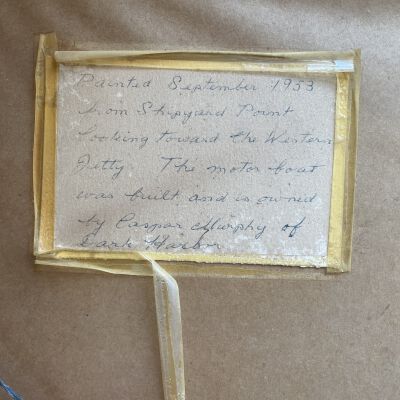 Painted September 1953
from Shipyard Point
looking toward the Western
Jetty The motor boat
was built and is owned
by Caspar Murphy of
Dark Harbor